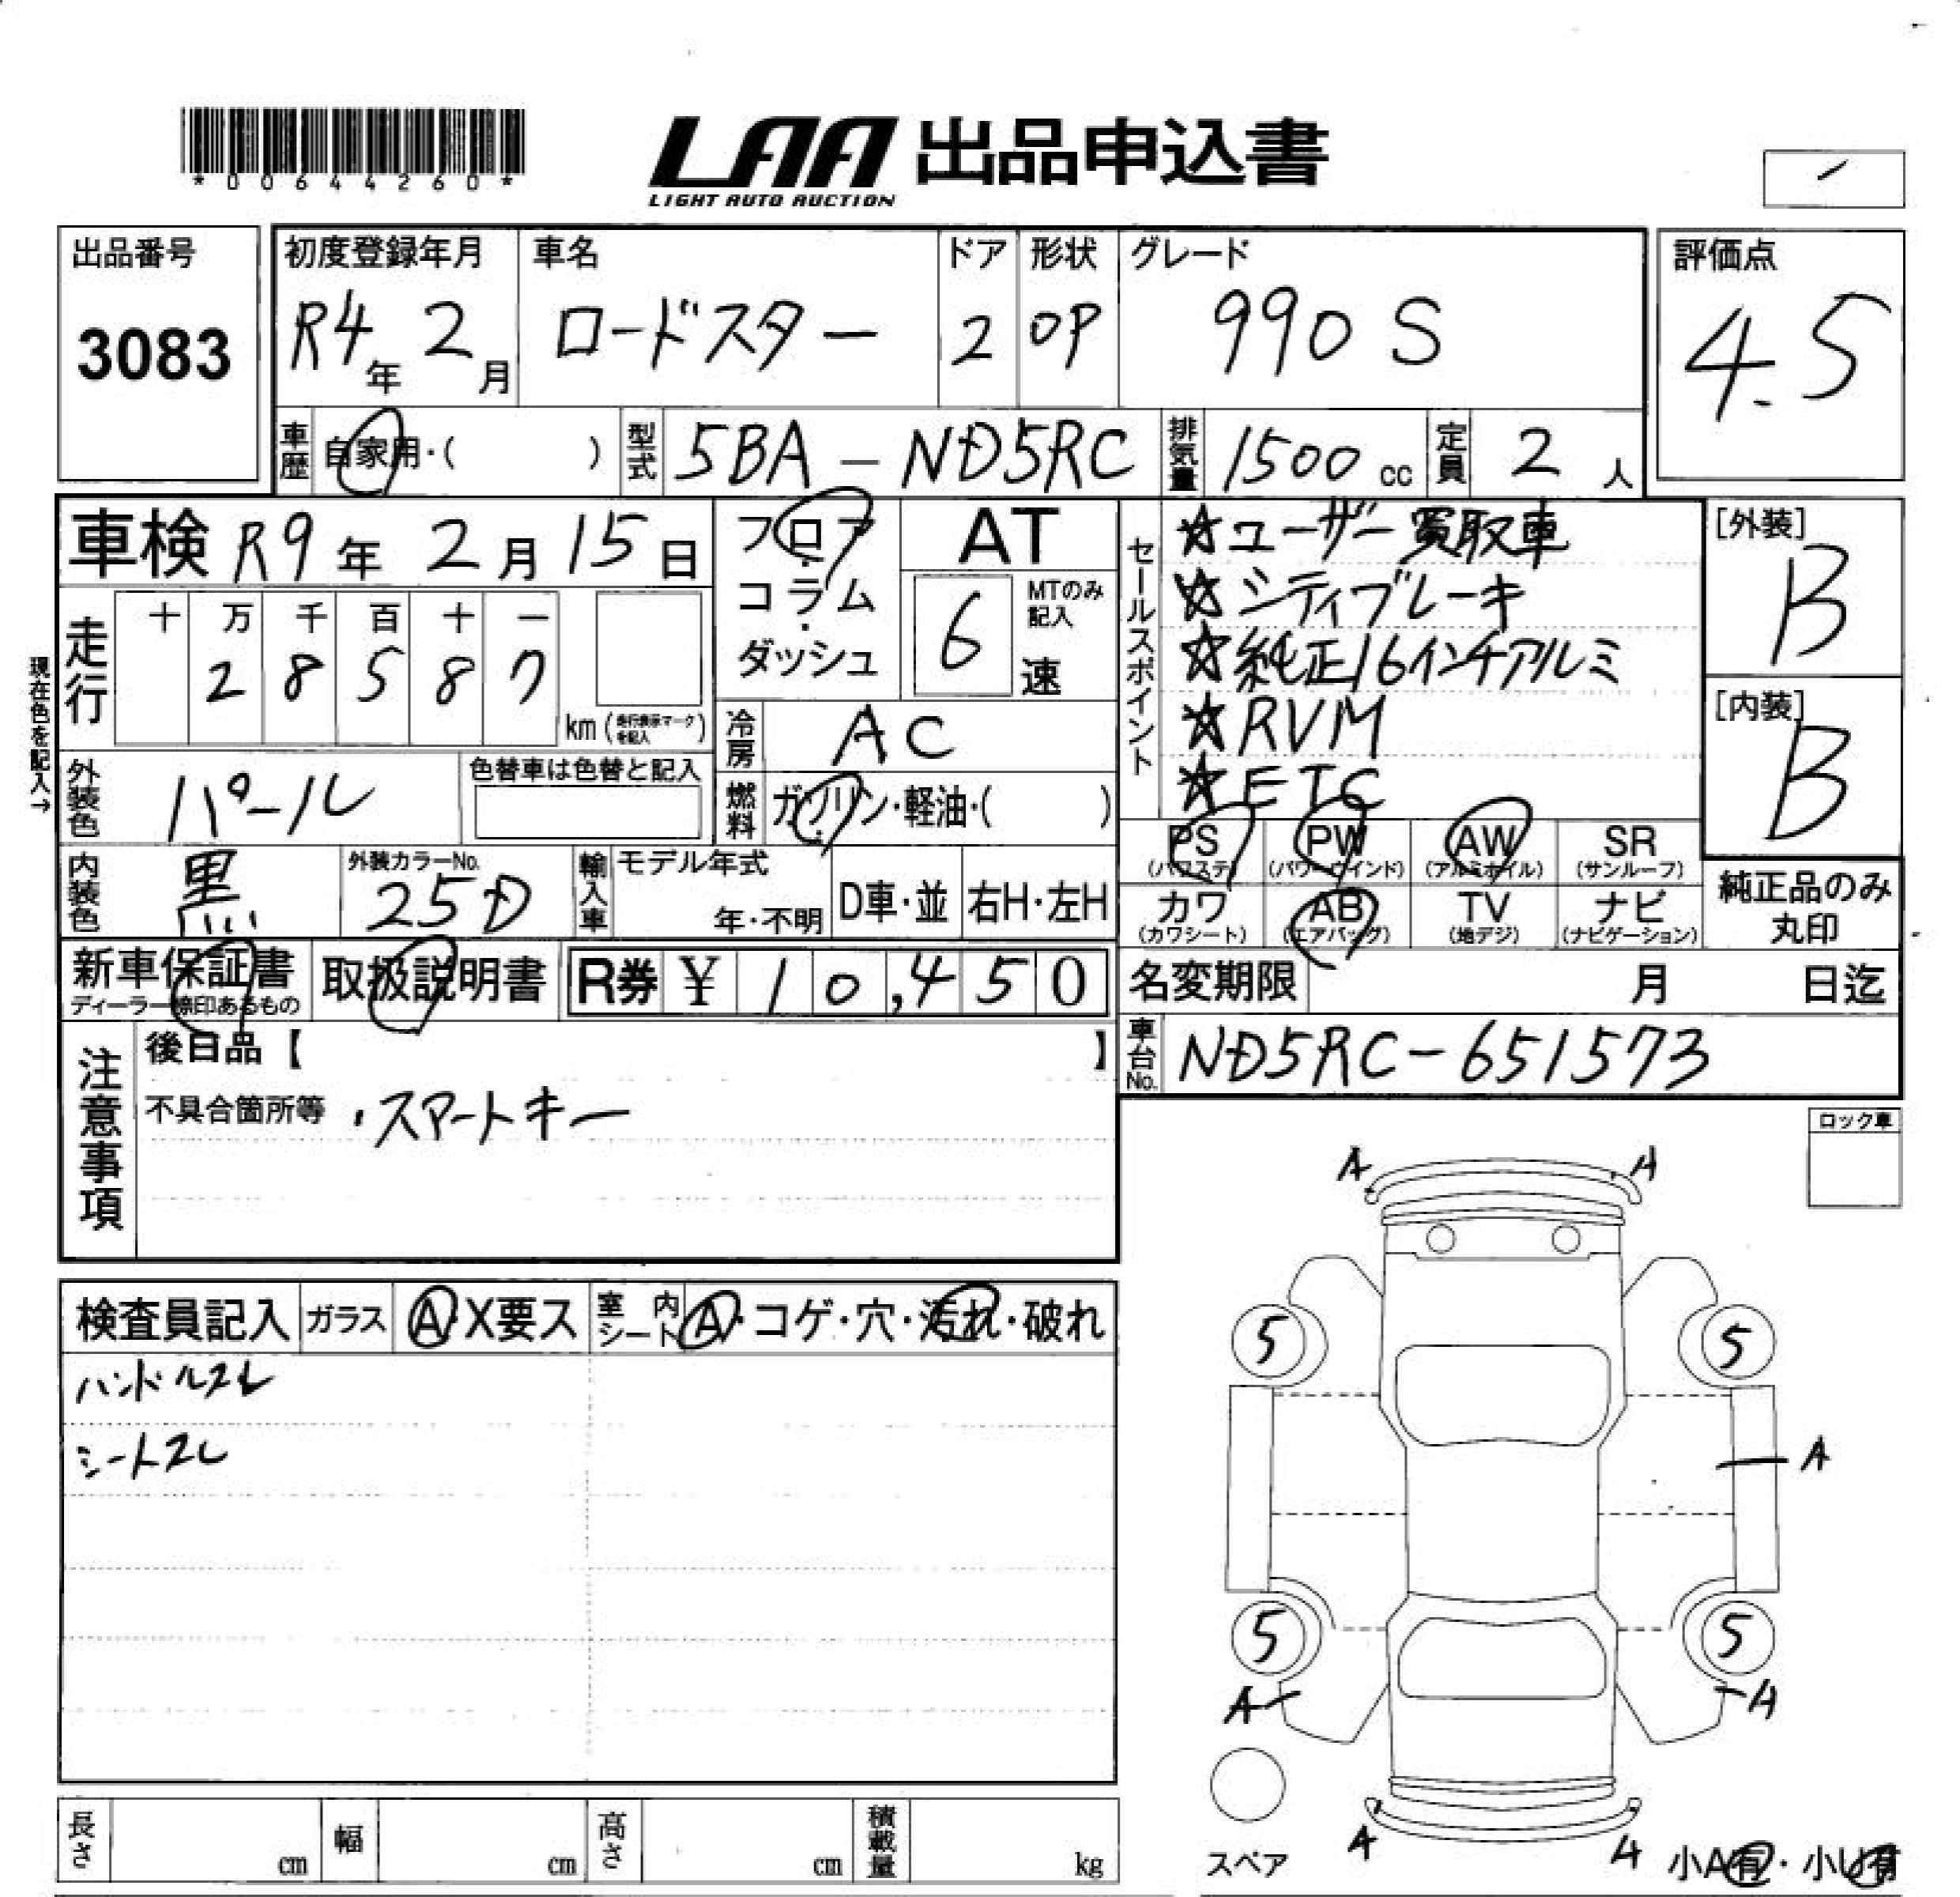 *00644260*
LAA 出品申込書
LIGHT AUTO AUCTION
出品番号
3083
初度登録年月
R4年 2月
車名
ロードスター
ドア
2
形状
OP
グレード
990 S
評価点
4.5
車歴 自家用・( )
型式 5BA-ND5RC
排気量 1500 cc
定員 2 人
車検 R9年 2月 15日
走行
十 万 千 百 十 一
2 8 5 8 7
km (走行表示マークを記入)
現在色を記入→
フロア・コラム・ダッシュ
AT
6
MTのみ記入
速
冷房 AC
燃料 ガソリン・軽油・( )
外装色 パール
色替車は色替と記入
内装色 黒
外装カラーNo.
25D
輸入車
モデル年式
年・不明
D車・並
右H・左H
セールスポイント
☆ユーザー買取車
☆シティブレーキ
☆純正16インチアルミ
☆RVM
☆ETC
[外装]
B
[内装]
B
PS (パワステ)
PW (パワーウインド)
AW (アルミホイル)
SR (サンルーフ)
カワ (カワシート)
AB (エアバッグ)
TV (地デジ)
ナビ (ナビゲーション)
純正品のみ丸印
新車保証書
取扱説明書
R券 ¥10,450
名変期限 月 日迄
車台No. ND5RC-651573
注意事項
後日品【 】
不具合箇所等 ・スマートキー
ロック車
検査員記入
ガラス A・X要ス
室内シート A・コゲ・穴・汚れ・破れ
ハンドルスレ
シートスレ
A A
5 5
A
5 5
A A
A A
スペア
小A有・小U有
長さ cm
幅 cm
高さ cm
積載量 kg